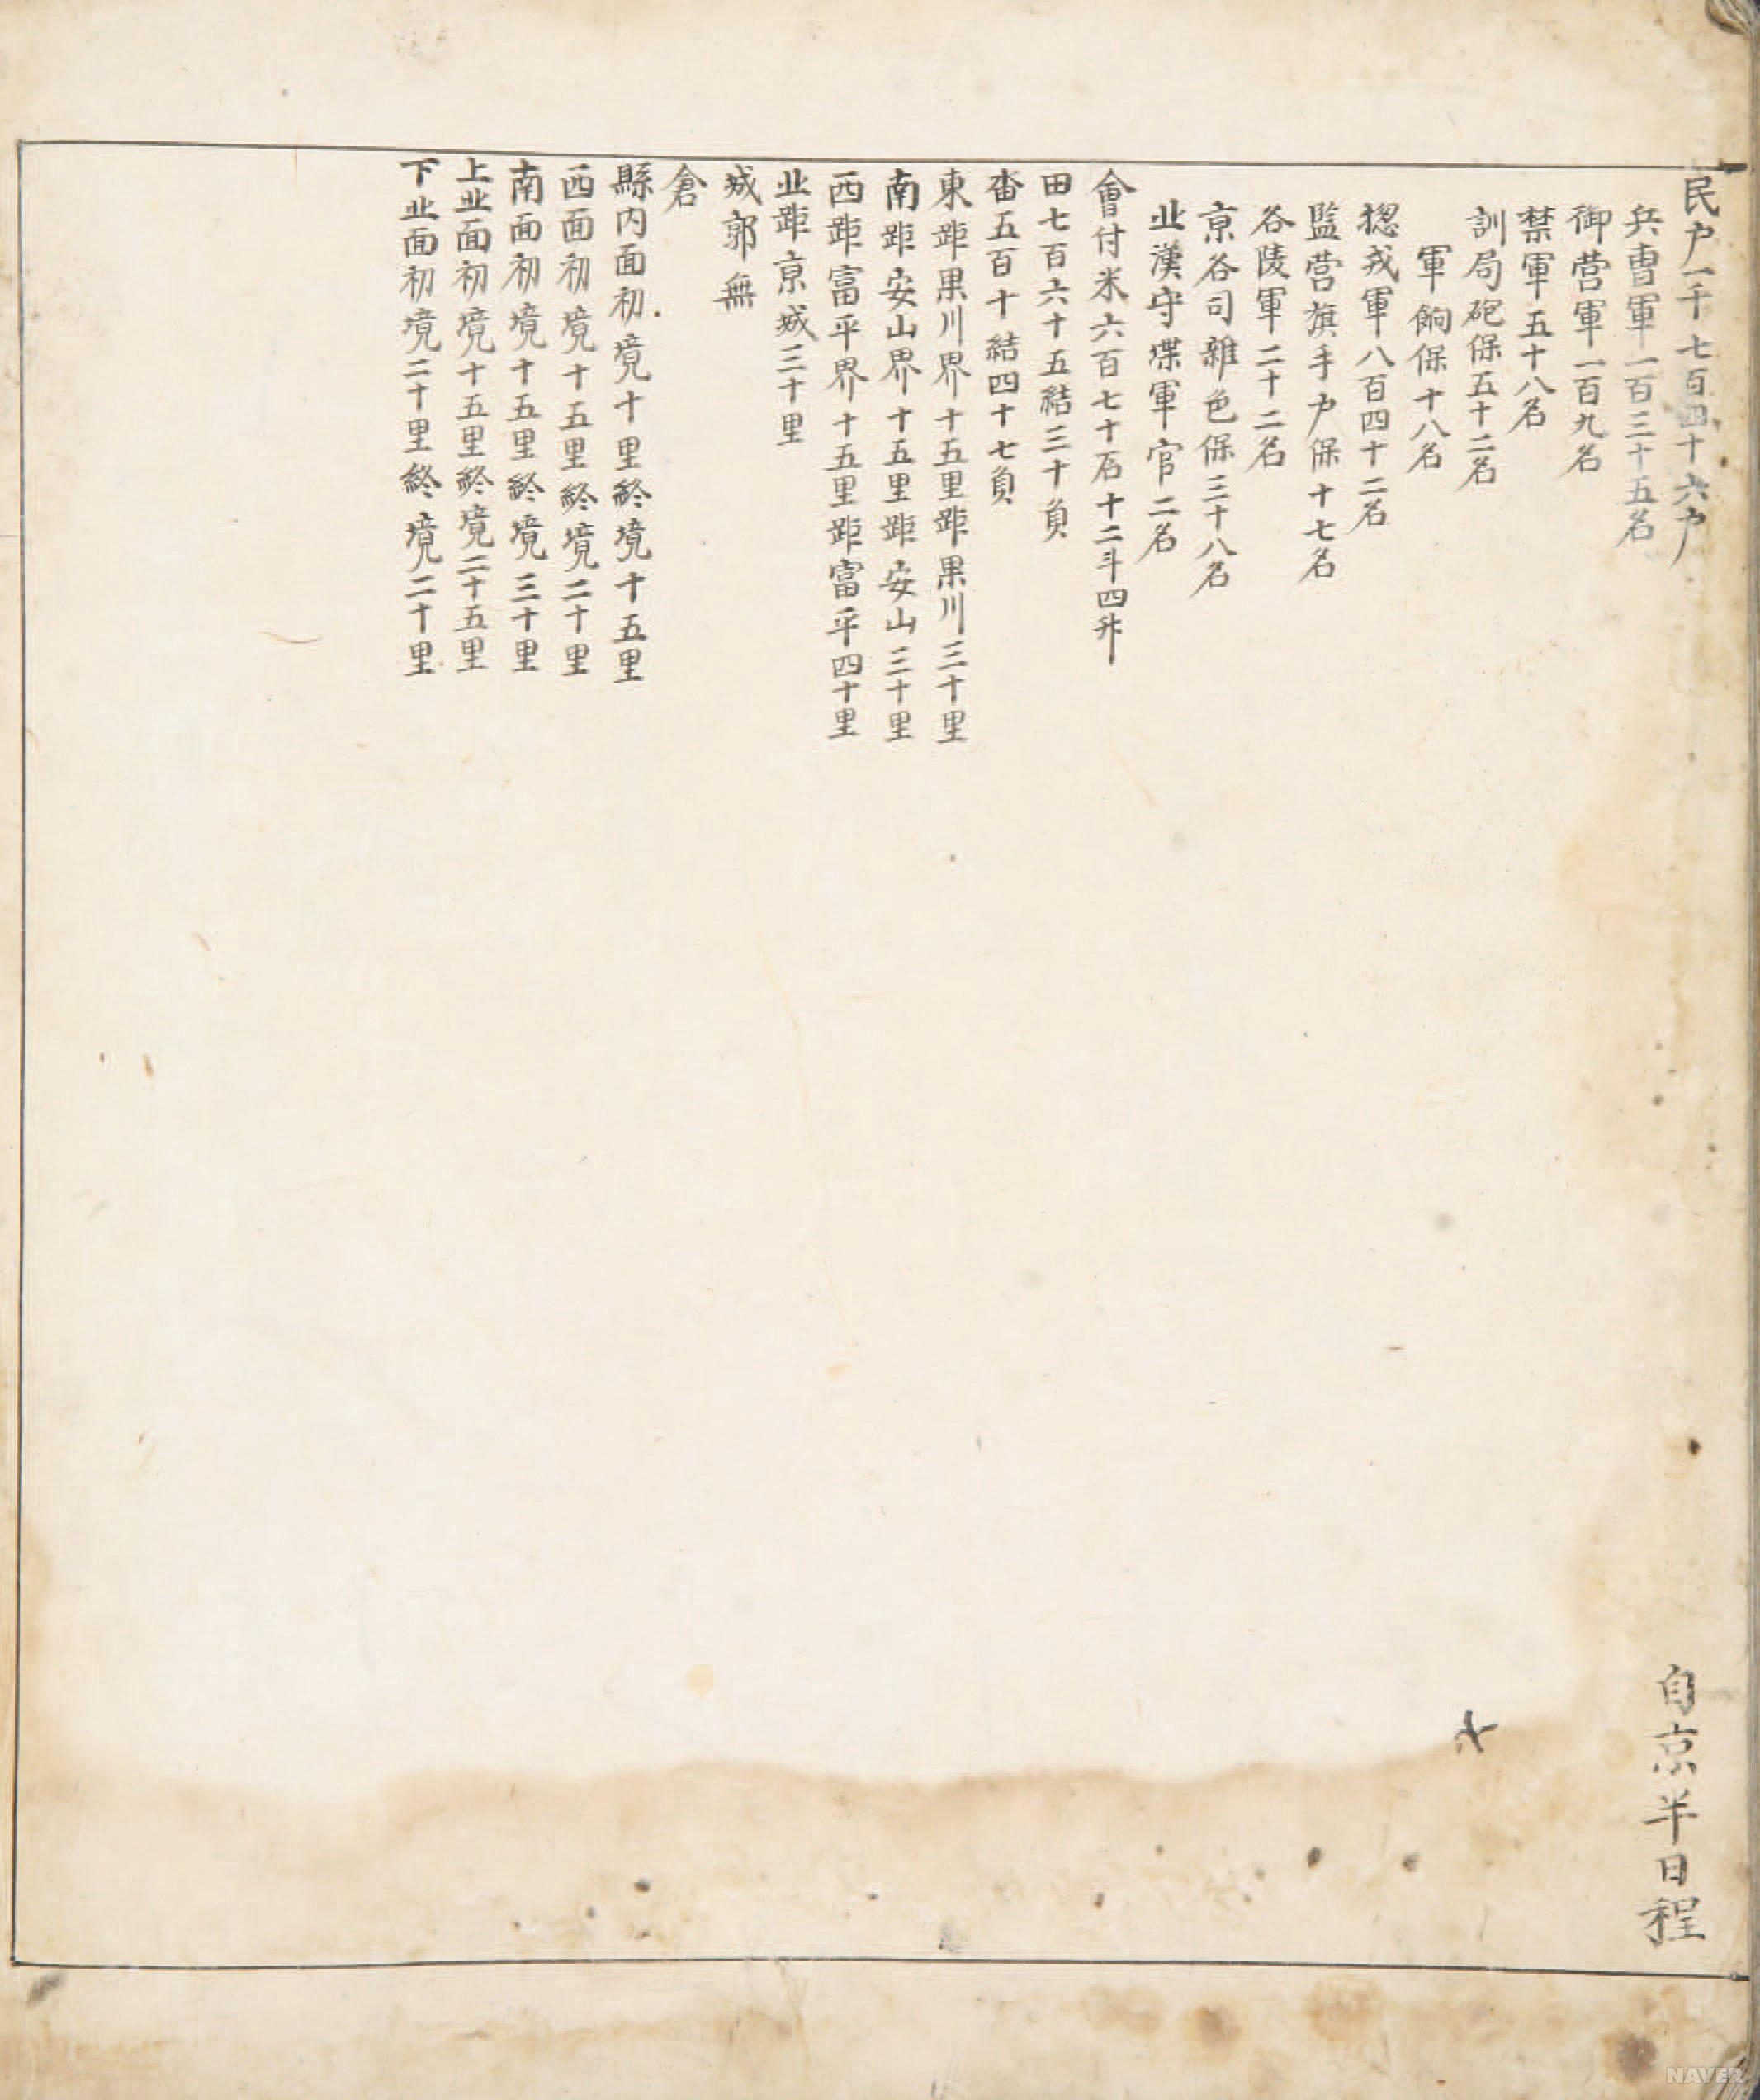 民户一千七百四十六户
兵曺軍一百三十五名
御营軍一百九名
禁軍五十八名
訓局砲保五十二名
軍餉保十八名
摠戎軍八百四十二名
監营旗手户保十七名
各陵軍二十二名
京各司雜色保三十八名
北漢守堞軍官二名
會付米六百七十石十二斗四升
田七百六十五結三十負
畓五百十結四十七負
東距果川界十五里距果川三十里
南距安山界十五里距安山三十里
西距富平界十五里距富平四十里
北距京城三十里
城郭無
倉
縣内面初境十里終境十五里
西面初境十五里終境二十里
南面初境十五里終境三十里
上北面初境十五里終境二十五里
下北面初境二十里終境二十里
自京半日程
NAVER